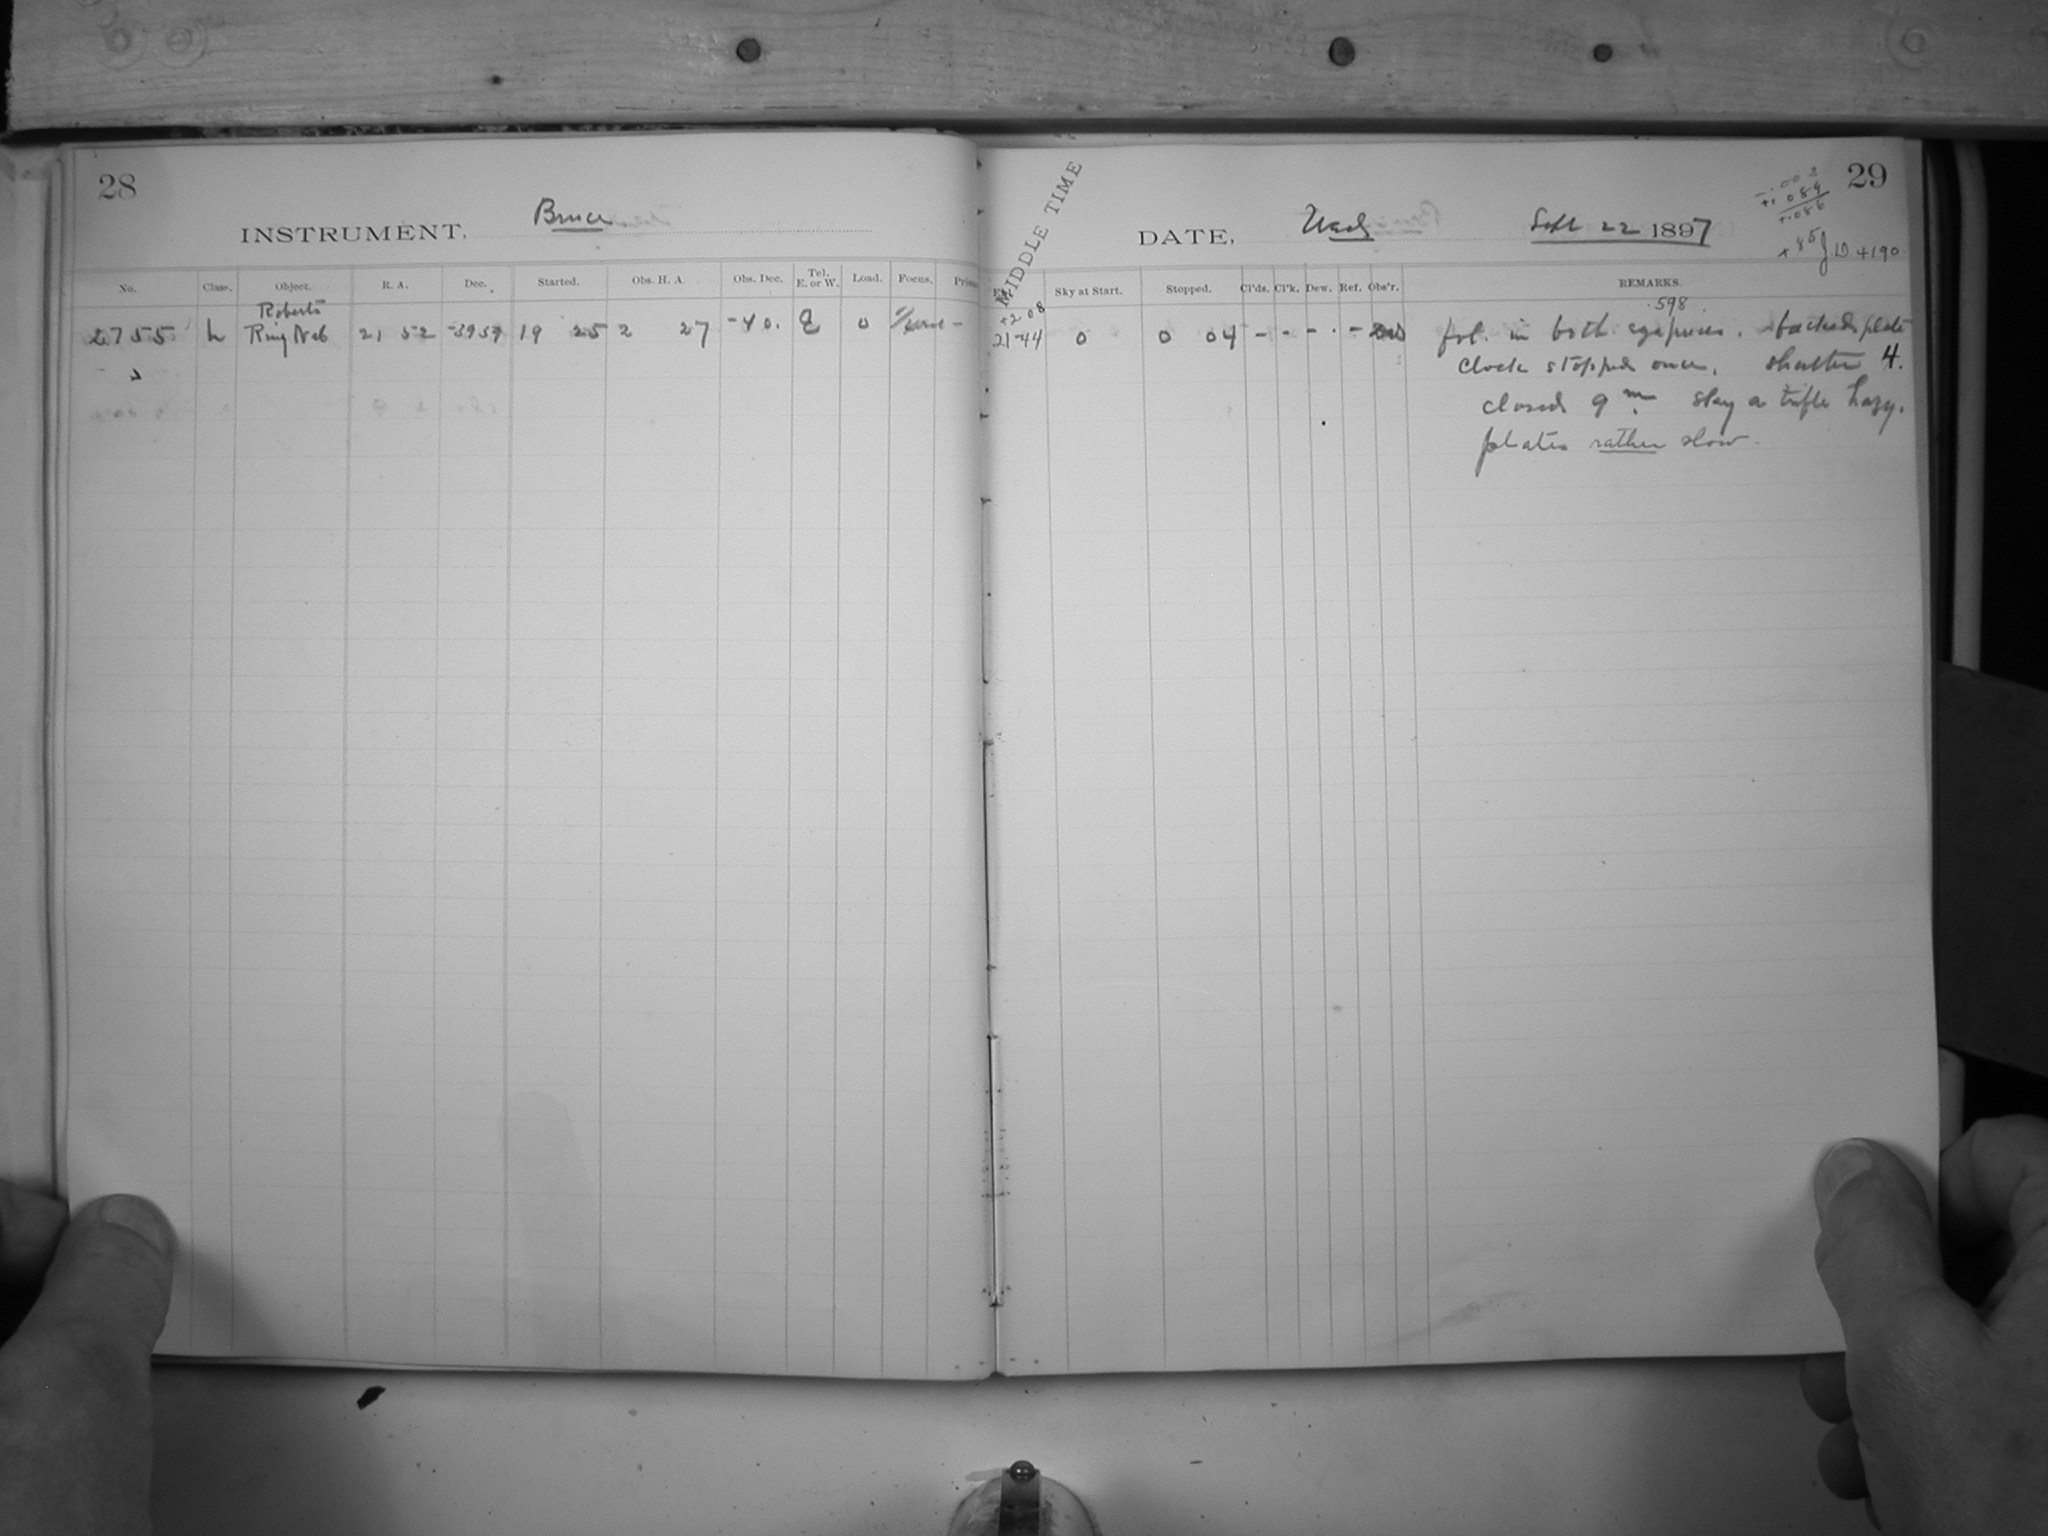 28
INSTRUMENT, Bruce
No. Class. Object. R. A. Dec. Started. Obs. H. A. Obs. Dec. Tel. E. or W. Load. Focus.
Roberts
2755 L Ring Neb 21 52 -39 59 19 25 2 27 -40. E 0
MIDDLE TIME
DATE, Wed. Sept 22 1897
29
-.003
+.089
+.086
+85 J.D. 4190
Sky at Start. Stopped. Cl'ds. Cl'k. Dew. Ref. Obs'r. REMARKS.
+208 .598
21 44 0 0 04 - - - - fol. in both eyepieces. backed plate
clock stopped once. shutter 4.
closed 9 m sky a trifle hazy.
plates rather slow.